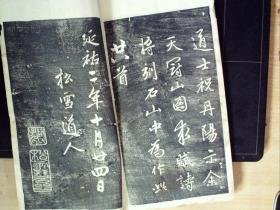 道士祝丹陽示余
天冠山圖求賦詩
將刻石山中為作此
廿八首
延祐二年十月廿四日
松雪道人